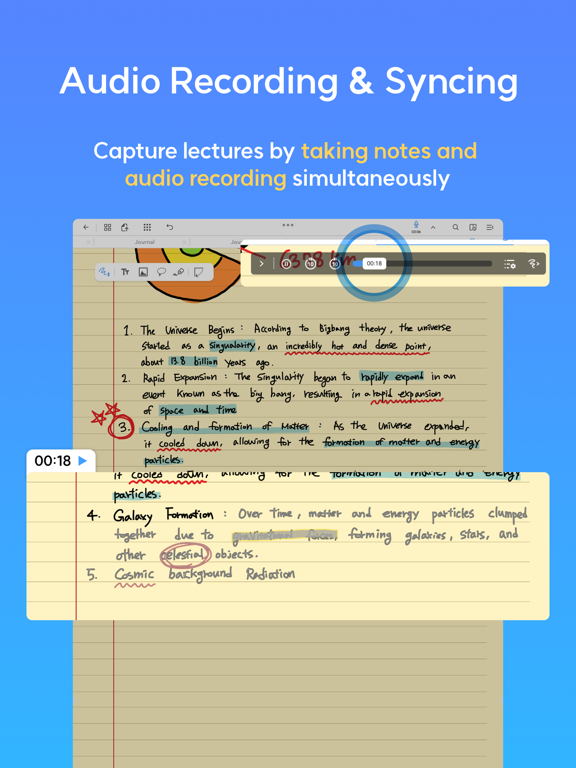 Audio Recording & Syncing
Capture lectures by taking notes and
audio recording simultaneously
Journal
00:18
Tr
1. The Universe Begins : According to Bigbang theory, the universe
started as a singularity, an incredibly hot and dense point,
about 13.8 billion years ago.
2. Rapid Expansion : The Singularity began to rapidly expand in an
event known as the big bang, resulting in a rapid expansion
of space and time
3. Cooling and formation of Matter : As the Universe expanded,
it cooled down, allowing for the formation of matter and energy
particles.
00:18
it cooled down, allowing for the formation of matter and energy
particles.
4. Galaxy Formation : Over time, matter and energy particles clumped
together due to gravitational forces, forming galaxies, stars, and
other celestial objects.
5. Cosmic background Radiation